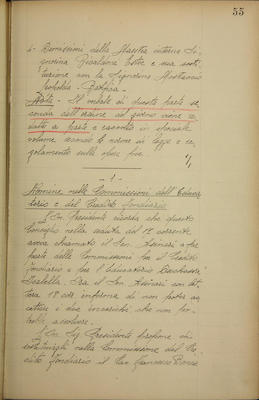 55
6- Dimissioni della Maestra interna Si-
gnorina Rivaldone Ester e sua sosti-
tuzione con la Signorina
- Ratifica -
Nota - Il verbale di questa parte se-
conda dell'ordine del giorno viene re-
datto a parte e raccolto in speciale
volume secondo le norme di legge e re-
golamento sulle opere pie.
- 1 -
Nomine nelle Commissioni dell'Educa-
torio e del Credito Fondiario
Il Sig. Presidente ricorda che questo
Consiglio nella seduta del 12 corrente
aveva chiamato il Sen. a far
parte delle Commissioni per il Credito
Fondiario e per l'Educatorio Duchessa
Isabella. Ora il Sen. con let-
tera 18 corr. informa di non poter ac-
cettare i due incarichi che non po-
trebbe assolvere.
Il Sig. Presidente propone di
sostituirgli nella Commissione del Cre-
dito Fondiario il Sen. Francesco